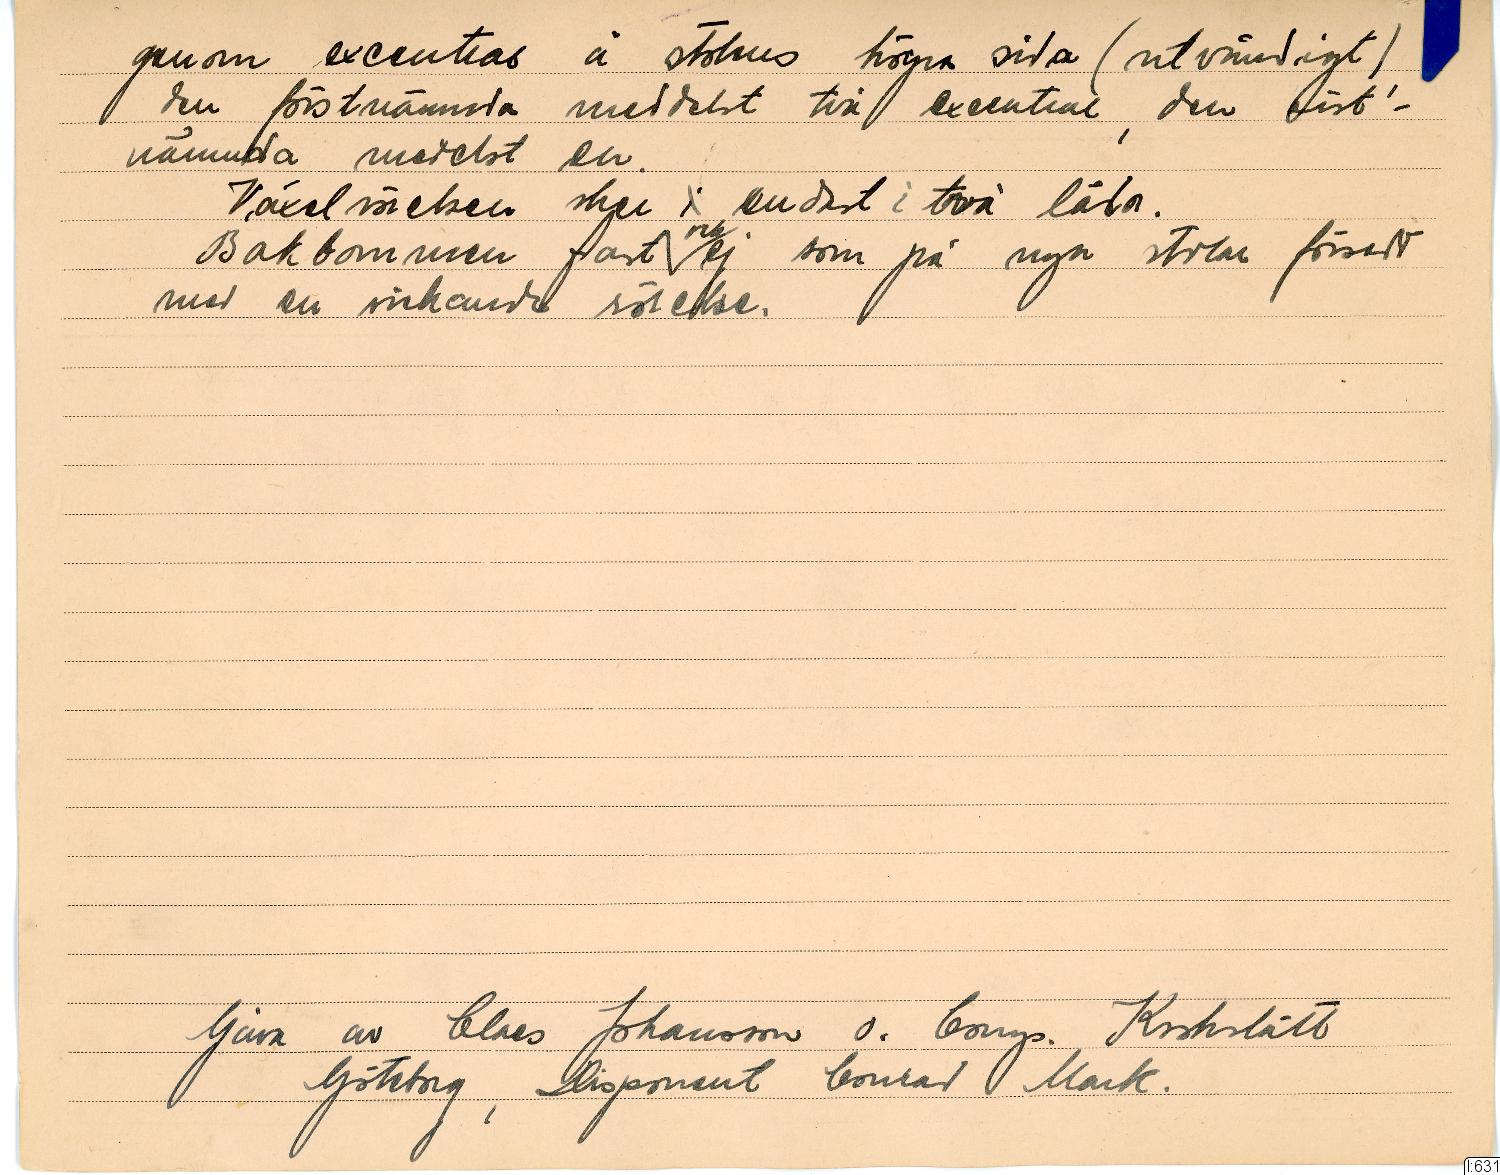 genom excentrar å stolens högra sida (utvändigt)
den förstnämnda meddelst två excentrar, den sist-
nämnda medelst en.
Växelrörelsen sker i endast i två lådor.
Bakbommen fast och ej som på nya stolar försedd
med en vickande rörelse.
Gåva av Claes Johansson o. Comp. Krokslätt
Göteborg, Disponent Conrad Mark.
I:631